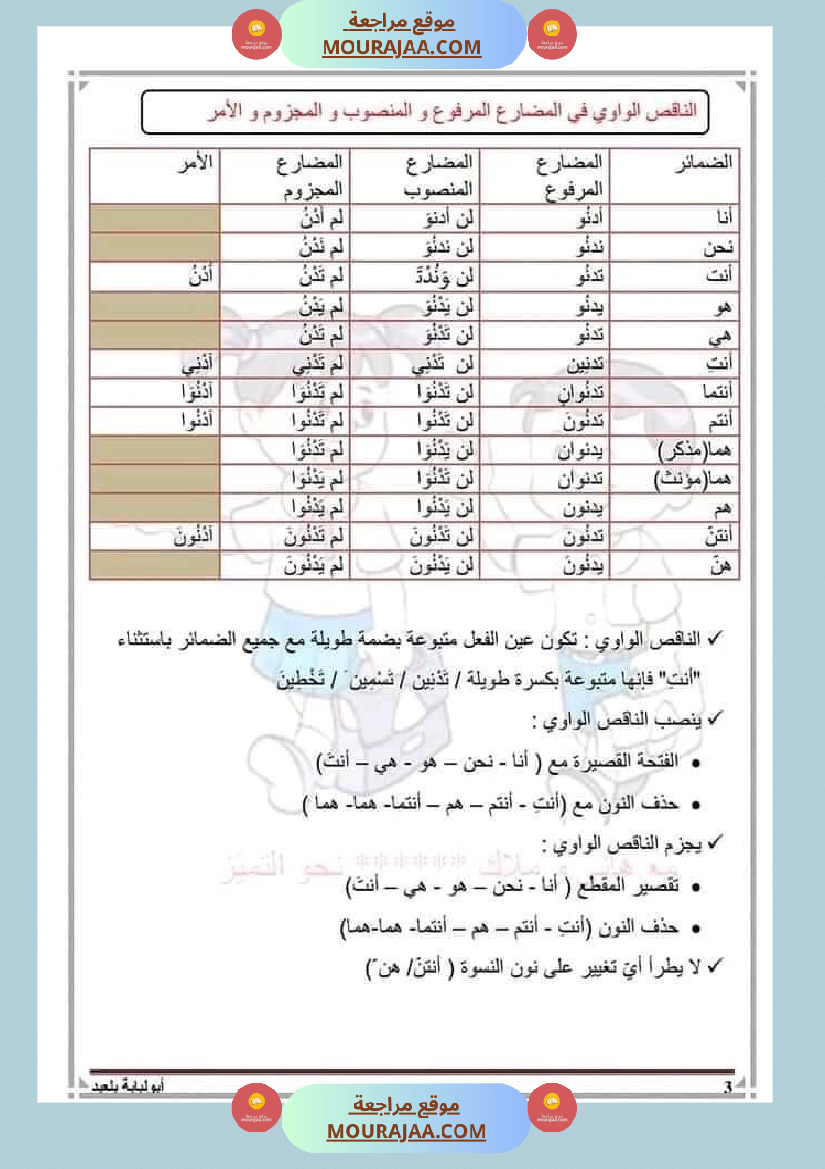 موقع مراجعة
MOURAJAA.COM
الناقص الواوي في المضارع المرفوع و المنصوب و المجزوم و الأمر
الضمائر المضارع المرفوع المضارع المنصوب المضارع المجزوم الأمر
أنا أدنُو لن أدنوَ لم أدْنُ
نحن ندنُو لن ندنُوَ لم نَدْنُ
أنتَ تدنُو لن وَنُدْتَ لم تَدْنُ اُدْنُ
هو يدنُو لن يَدْنُوَ لم يَدْنُ
هي تدنُو لن تَدْنُوَ لم تَدْنُ
أنتِ تدنِين لن تَدْنِي لم تَدْنِي اَدْنِي
أنتما تدنُوانِ لن تَدْنُوَا لم تَدْنُوَا اَدْنُوَا
أنتم تدنُونَ لن تَدْنُوا لم تَدْنُوا اَدْنُوا
هما(مذكر) يدنوان لن يَدْنُوَا لم تَدْنُوَا
هما(مؤنث) تدنوان لن تَدْنُوَا لم يَدْنُوَا
هم يدنون لن يَدْنُوا لم يَدْنُوا
أنتنّ تدنُونَ لن تَدْنُونَ لم تَدْنُونَ اَدْنُونَ
هنّ يدنُونَ لن يَدْنُونَ لم يَدْنُونَ
✓ الناقص الواوي : تكون عين الفعل متبوعة بضمة طويلة مع جميع الضمائر باستثناء
"أنتِ" فإنها متبوعة بكسرة طويلة / تَدْنِين / تَسْمِينَ / تَخْطِينَ
✓ ينصب الناقص الواوي :
• الفتحة القصيرة مع ( أنا - نحن – هو - هي – أنتَ)
• حذف النون مع (أنتِ - أنتم – هم – أنتما- هما- هما )
✓ يجزم الناقص الواوي :
مع هاني و ملاك ****** نحو التميّز
• تقصير المقطع ( أنا - نحن – هو - هي – أنتَ)
• حذف النون (أنتِ - أنتم – هم – أنتما- هما-هما)
✓ لا يطرأ أيّ تغيير على نون النسوة ( أنتنّ/ هنّ)
3
أبولبابة بلعيد
موقع مراجعة
MOURAJAA.COM